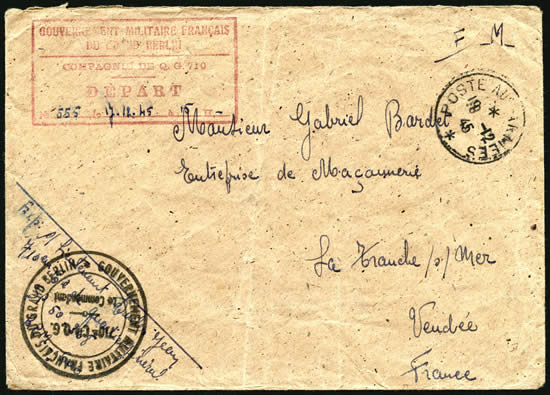 GOUVERNEMENT MILITAIRE FRANÇAIS
DU GRAND BERLIN
COMPAGNIE DE Q.G. 710
DÉPART
555 17.12.45 15
F_M_
POSTE AUX ARMÉES
18 -12 45
Monsieur Gabriel Bardet
Entreprise de Maçonnerie
La Tranche s/Mer
Vendée
France
GOUVERNEMENT MILITAIRE FRANÇAIS DU GRAND BERLIN
710e C.Q.G.
Le Commandant